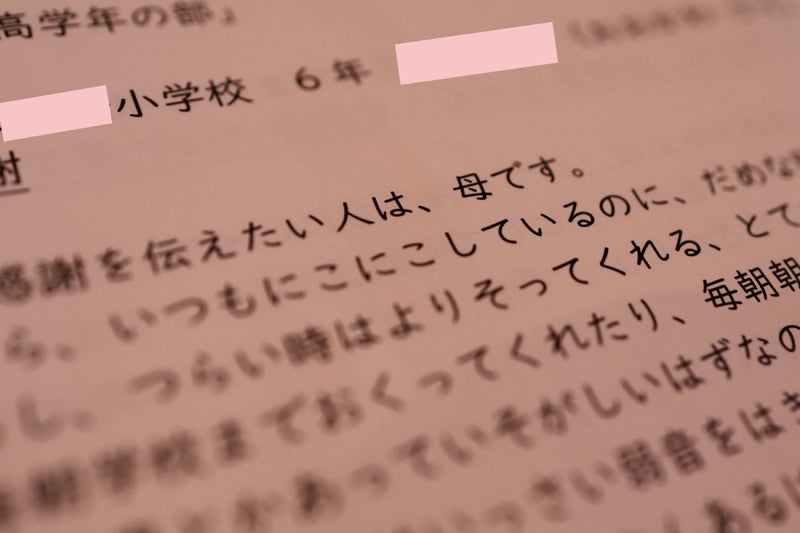 高学年の部」
小学校 6年
謝
感謝を伝えたい人は、母です。
ら、いつもにこにこしているのに、だめな
し、つらい時はよりそってくれる、とて
毎朝学校までおくってくれたり、毎朝朝
があっていそがしいはずなの
いっさい弱音をはき
あるは